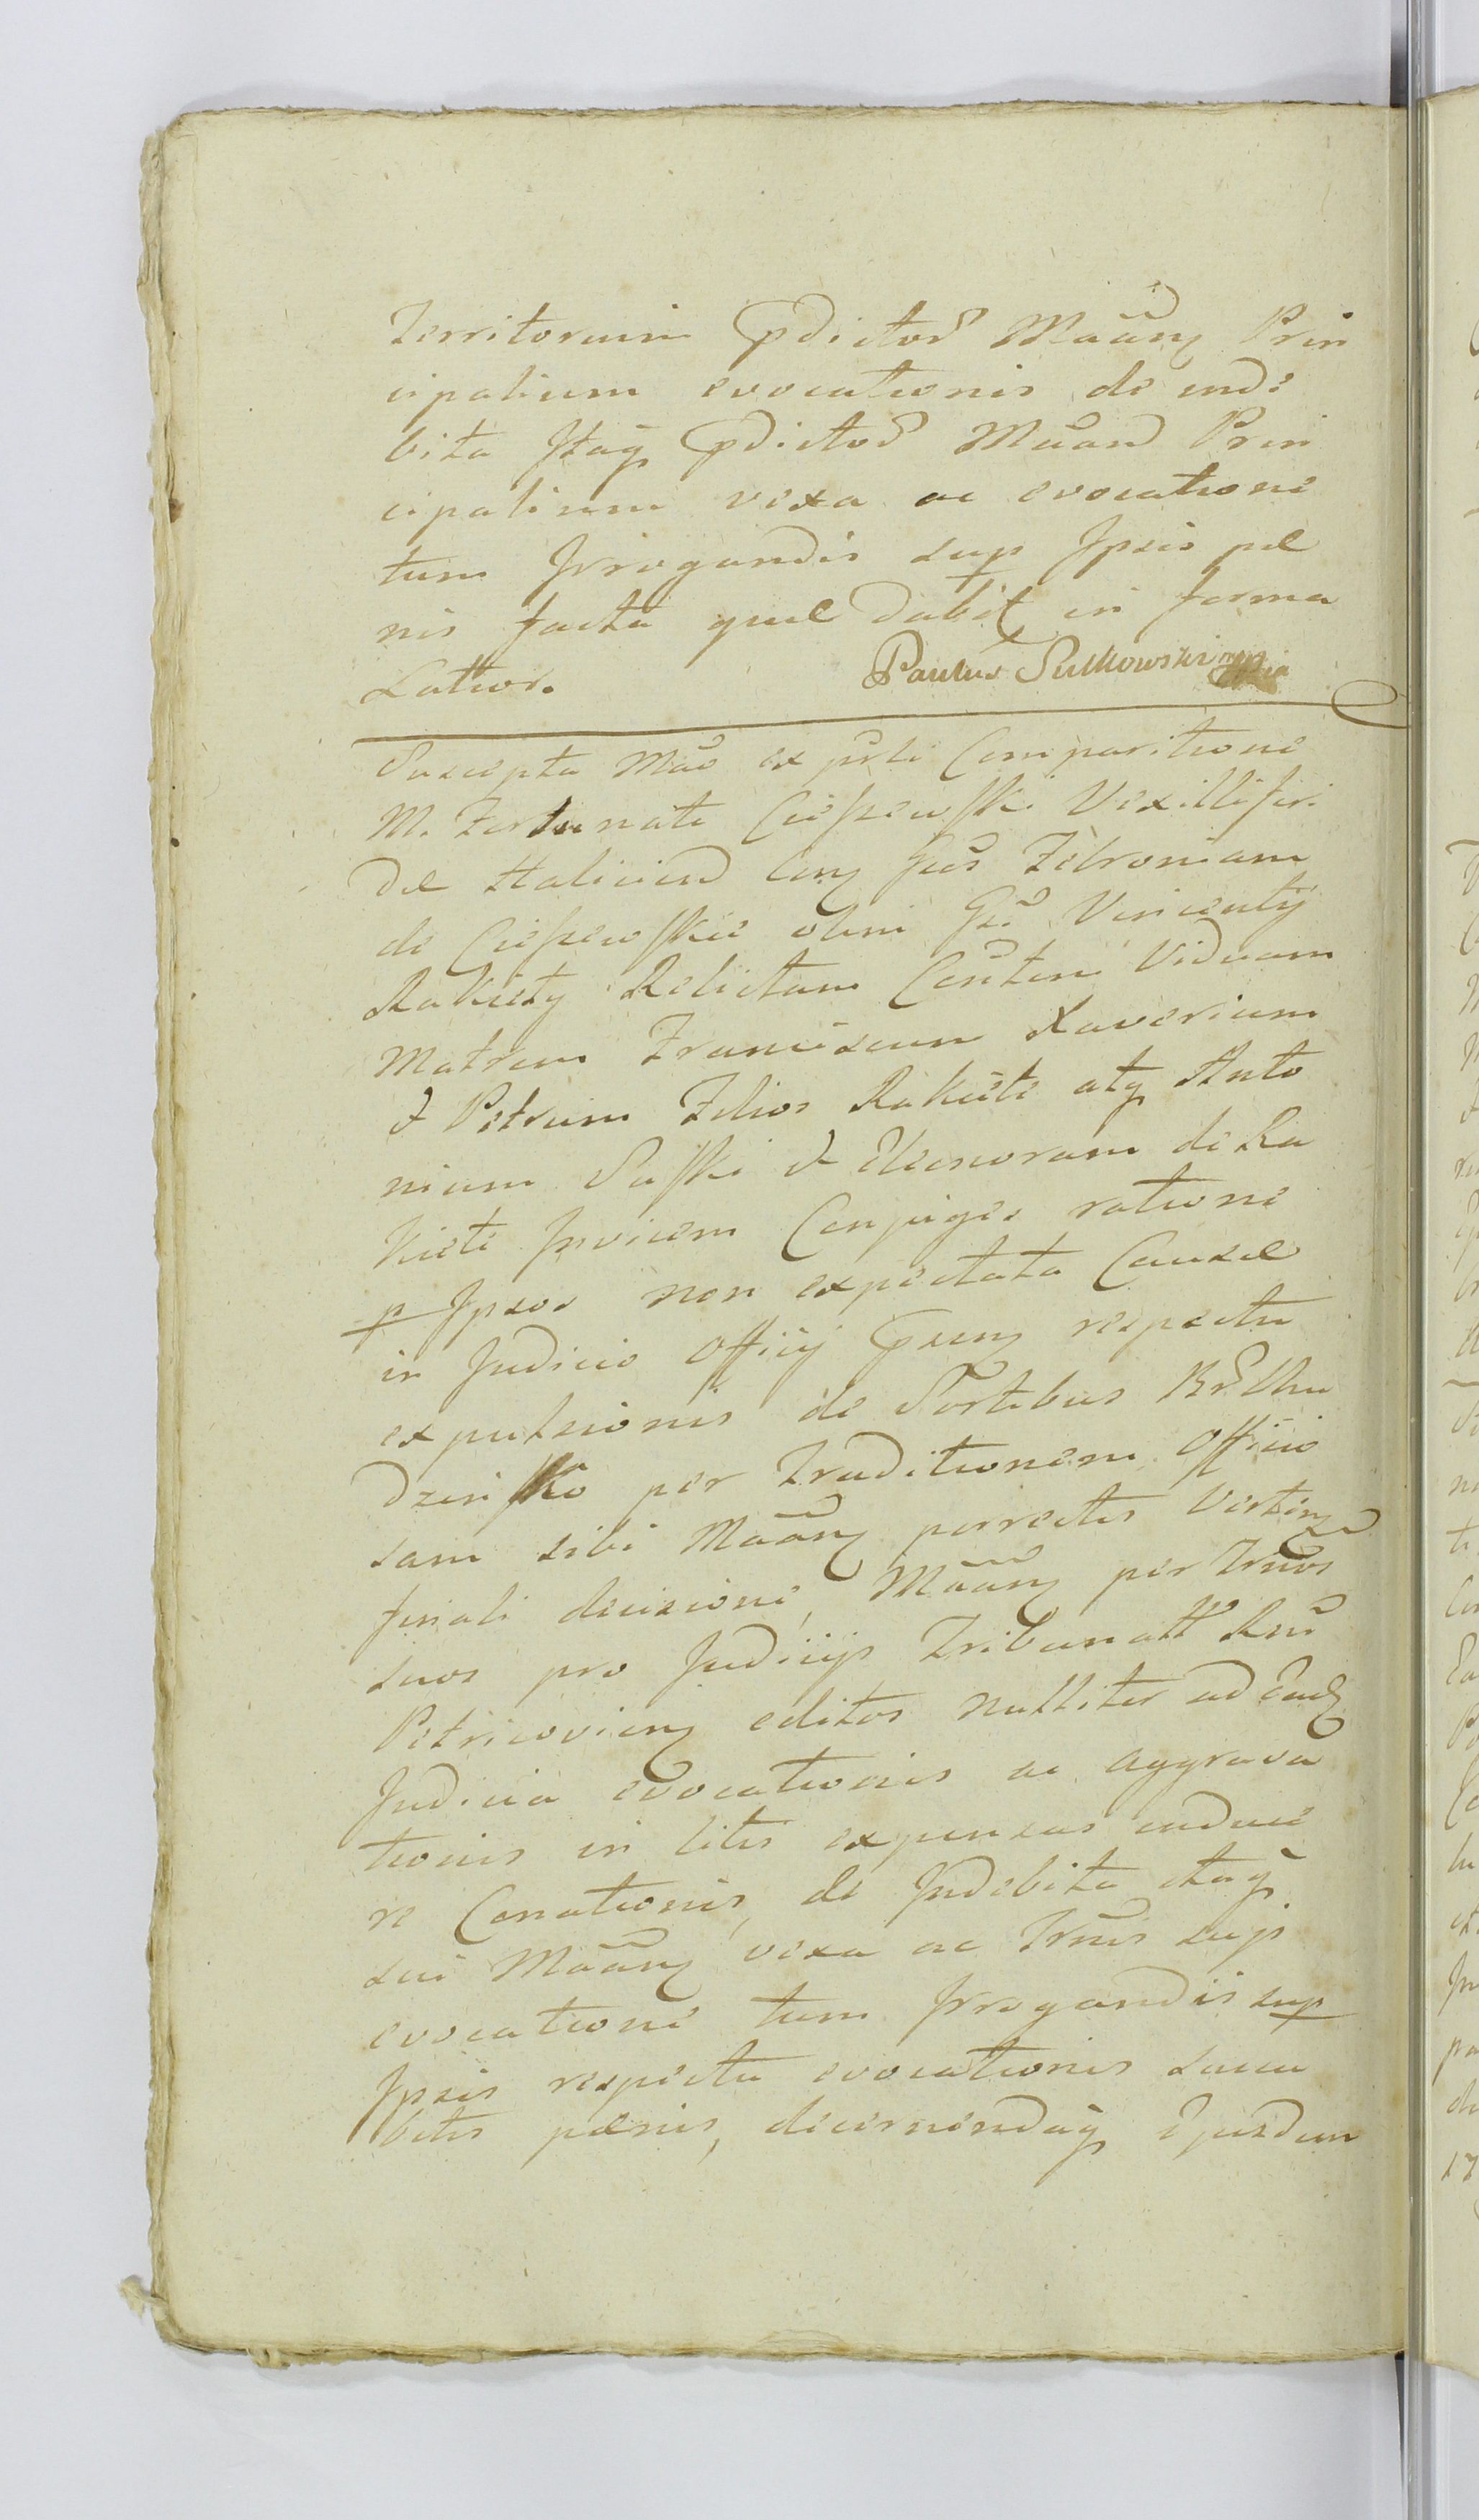 Territorum Pdictor Mãang Prin
cipalium evocationis de inde
bita Itaq Pdictor Mãand Prin
cipalium vexa ac evocatione
tum Irrogandis sup Ipsis pæ
nis facta quæ dabit in forma
Latior.
Paulus Sulkowski mp
Suscepta Mãe ex pste Comparitione
M. Fortunati Cieszewski Vexilliferi
Halicien
de Cieszewskie olim Vincentij
Rakiety Relictam Viduam
Matrem Franciscum Xaverium
& Petrum Filios Rakiete atq Anto
nium Saski & Eleonoram de Ra
kiete Invicem Conjuges ratione
p Ipsos non expectata Causæ
in Judicio Officij respectu
expulsionis de Sortibus
dzinsko per Traditionem Officio
sam sibi Mãang porrectis
finali decisione, Mãang per Trños
suos pro Judicijs Tribunall Rñi
Petricovieng editos nulliter ad Eadg
Judicia evocationis ac aggrava
tionis in litis expensas induce
re Conationis, de Indebita Itaq
sui Mãang vexa ac Trñis sup
evocatione tum Irrogandis sup
Ipsis respectu evocationis succu
bitis pænis, decernendaq Ejusdem